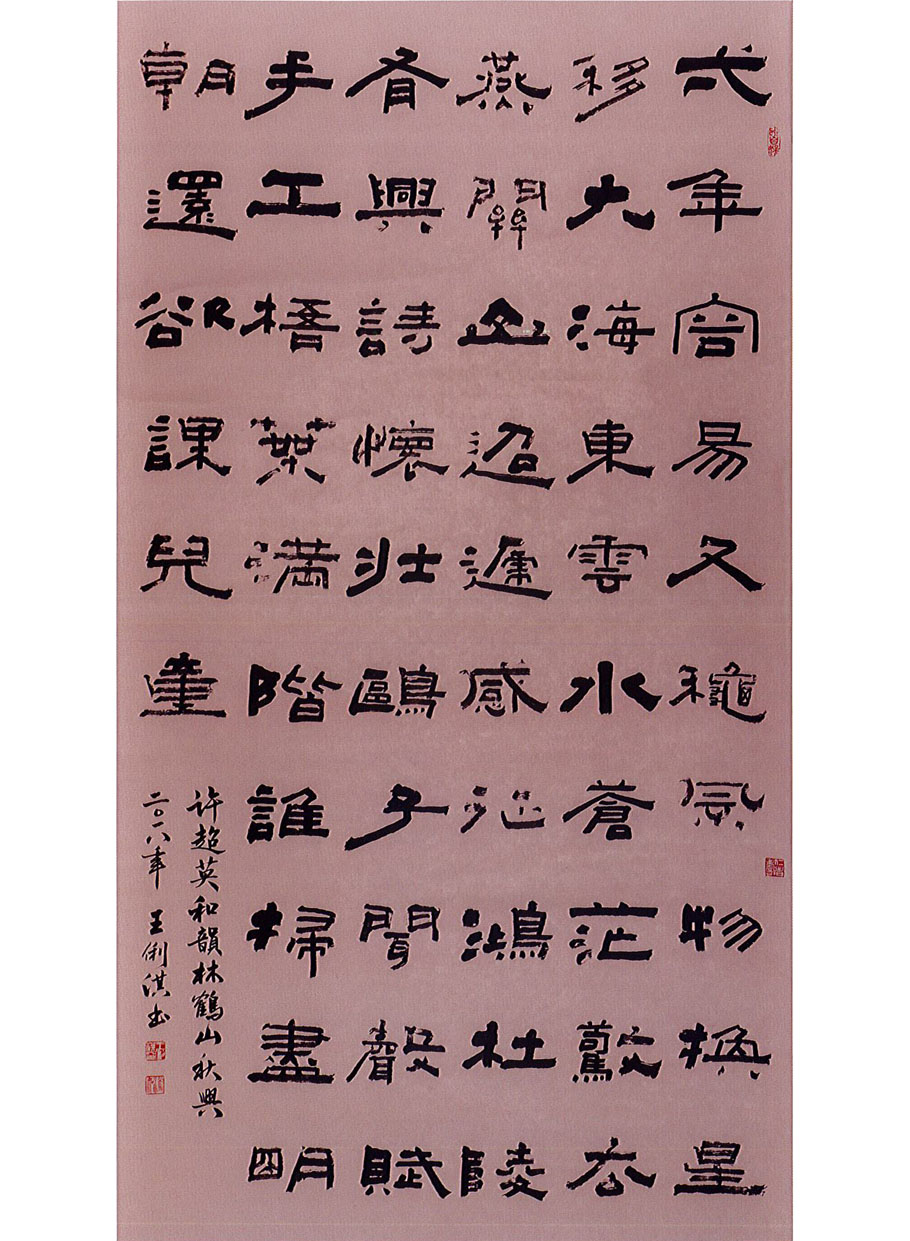 弌年容易又龝風物換星
移大海東雲水蒼茫驚去
燕關山迢遞感征鴻杜陵
有興詩懷壯鷗子聞聲賦
手工梧葉滿階誰掃盡明
朝還欲課兒童
许超英和韻林鶴山秋興
二〇一八年 王俐淇书